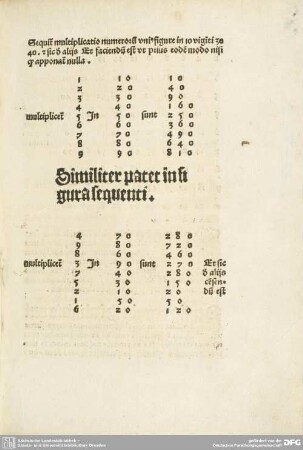 Sequit᷑ multiplicatio numeroꝝ vni⁹figure in 10 viginti 30
40. ⁊ sic ð alijs Et faciendū est vt prius eodē modo nisi
ꝙ apponat᷑ nulla.
1 10 10
2 20 40
3 30 90
4 40 160
multiplicent᷑ 5 In 50 sunt 250
6 60 360
7 70 490
8 80 640
9 90 810
Similiter patet in fi
gura sequenti.
4 70 280
9 80 720
8 60 480
multiplicent᷑ 3 In 90 sunt 270 Et sic
7 40 280 ð alijs
5 30 150 cēsen-
2 10 20 dū est
1 50 50
6 20 120